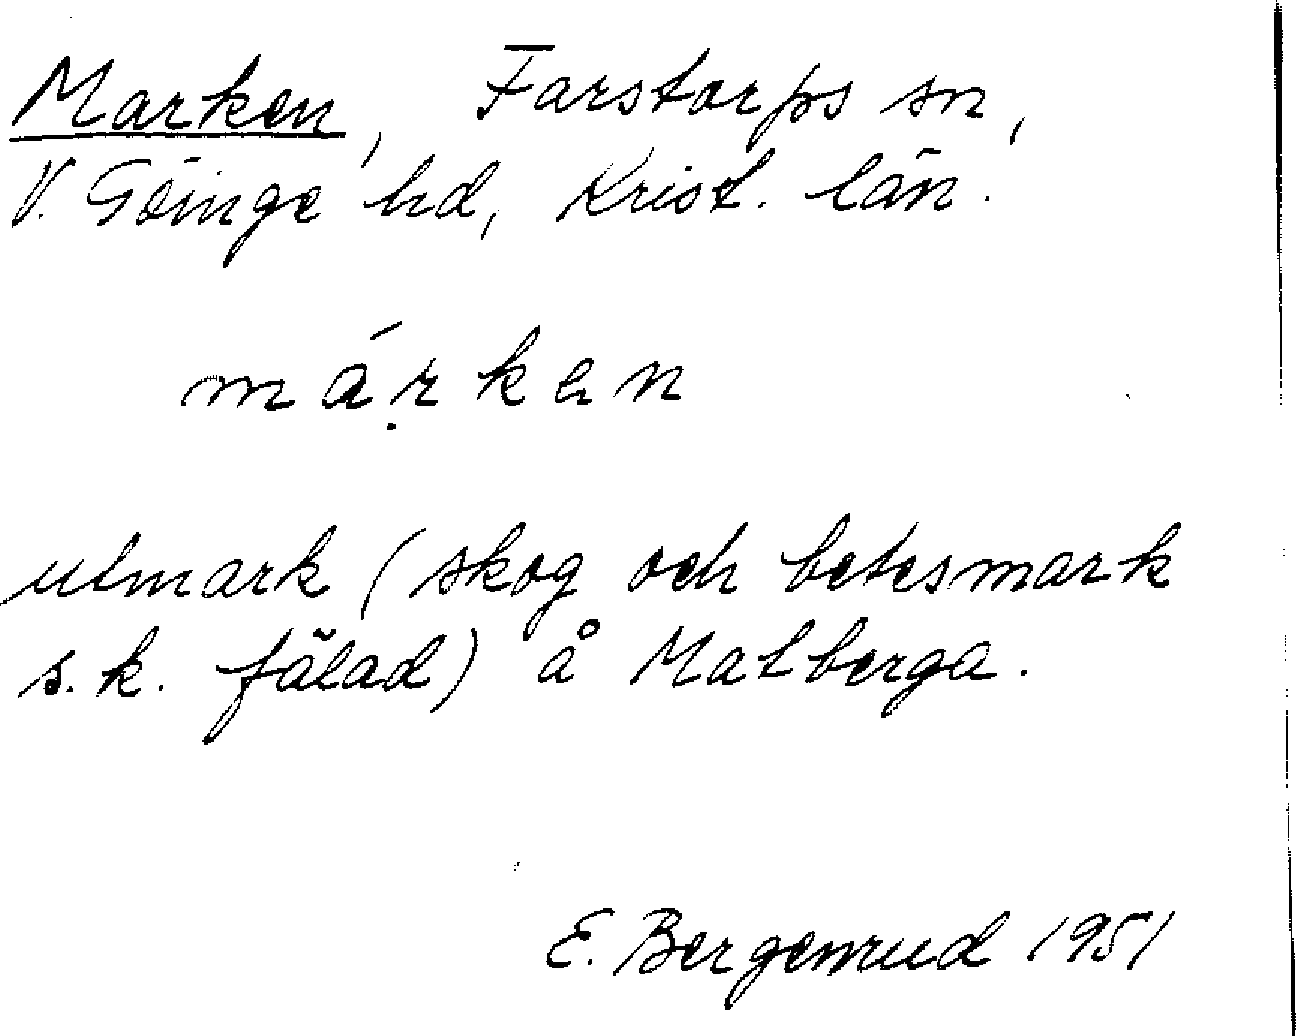 Marken, Farstorps sn,
V. Göinge hd, Krist. län.
mạ́rken
utmark (skog och betesmark
s.k. fälad) å Matberga.
E. Bergenrud 1951